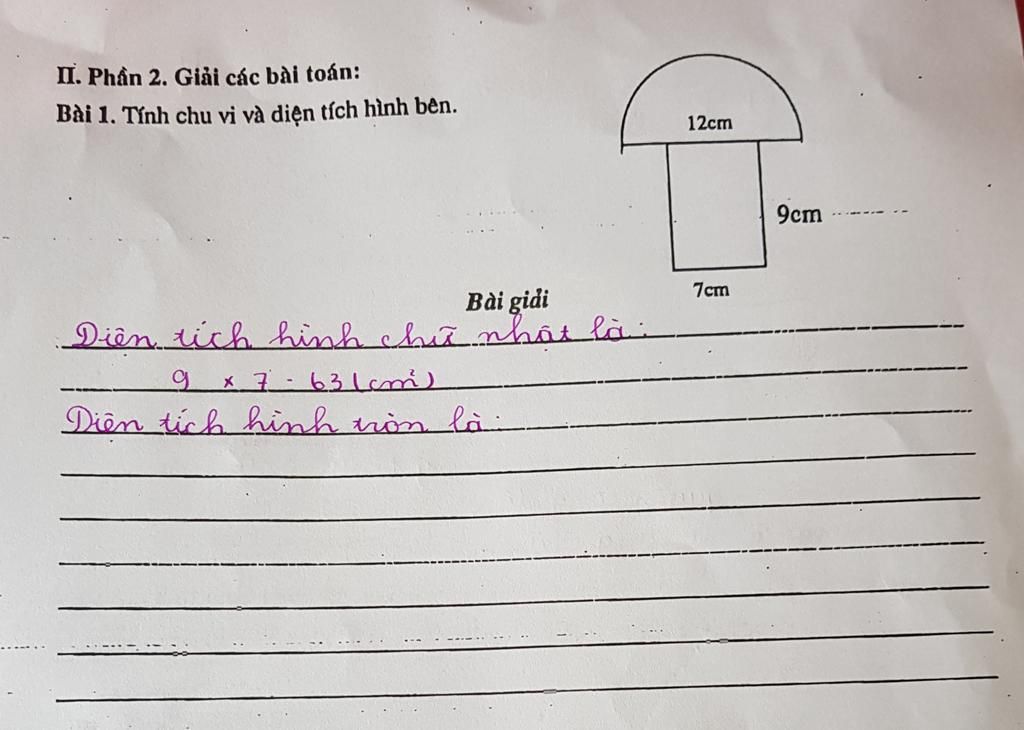 II. Phần 2. Giải các bài toán:
Bài 1. Tính chu vi và diện tích hình bên.
12cm
9cm
7cm
Bài giải
Diện tích hình chữ nhật là:
9 x 7 = 63 (cm²)
Diện tích hình tròn là: